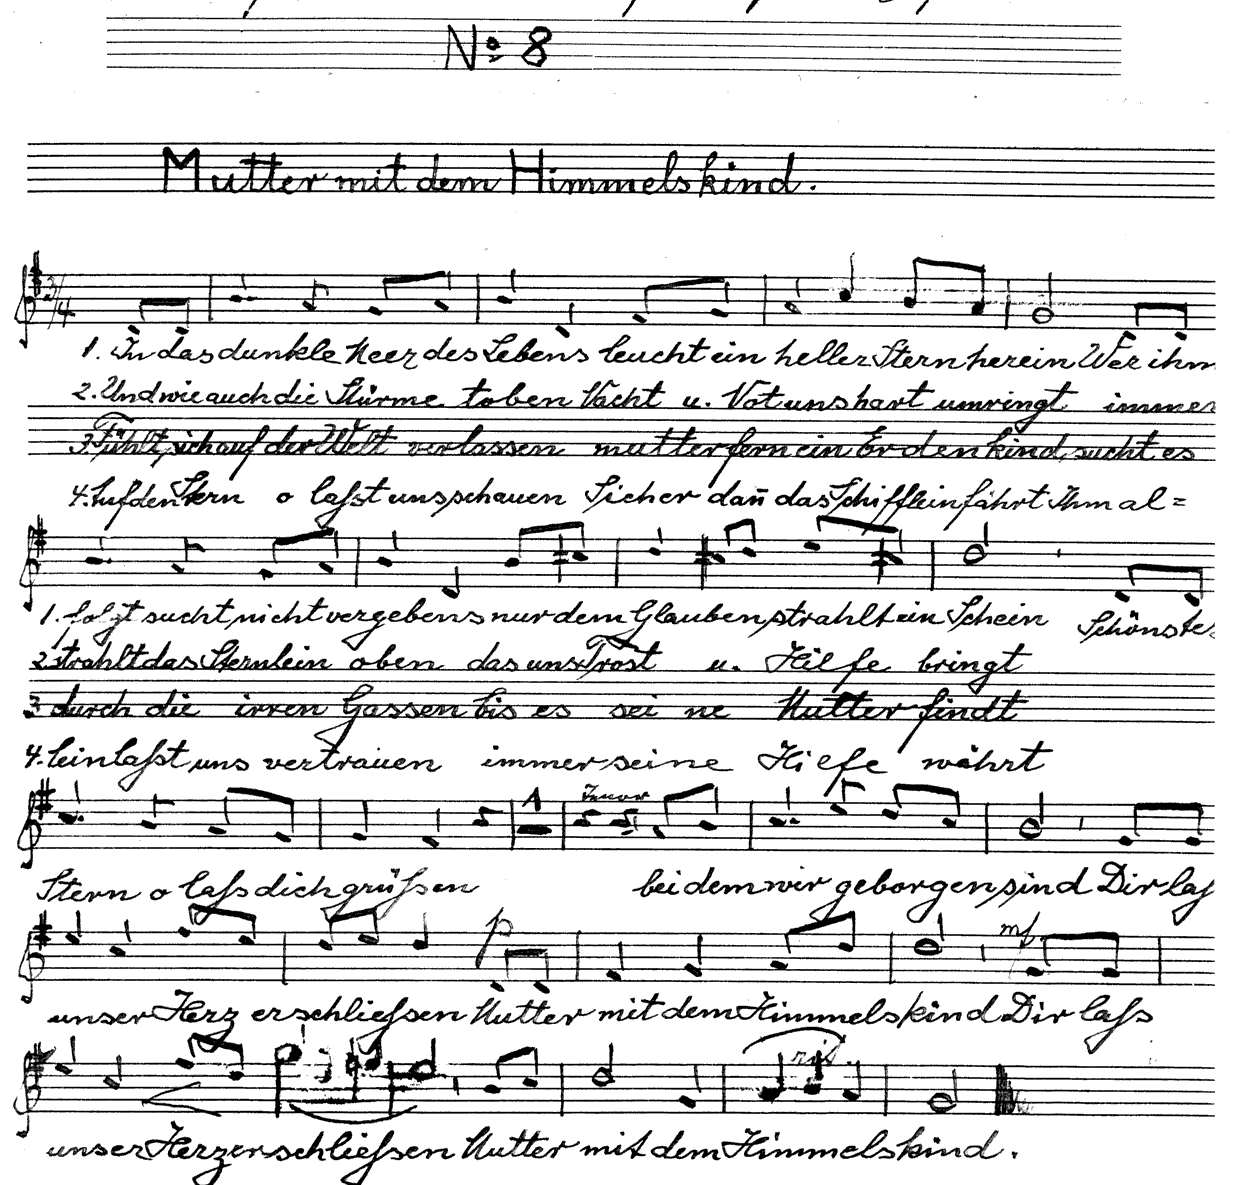 No 8
Mutter mit dem Himmelskind.
3/4
1. In das dunkle Meer des Lebens leucht ein heller Stern herein Wer ihm
2. Und wie auch die Stürme toben Nacht u. Not uns hart umringt immer
3. Fühlt, sich auf der Welt verlassen mutterfern ein Erdenkind, sucht es
4. Auf den Stern o laßt uns schauen Sicher dañ das Schifflein fährt Ihm al=
1. folgt sucht nicht vergebens nur dem Glauben strahlt ein Schein Schönster
2. strahlt das Sternlein oben das uns Trost u. Hilfe bringt
3 durch die irren Gassen bis es sei ne Mutter findt
4. lein laßt uns vertrauen immer seine Hilfe währt
1 Tenor
Stern o lass dich grüßen bei dem wir geborgen sind Dir laß
p mf.
unser Herz erschließen Mutter mit dem Himmelskind Dir lass
rit.
unser Herz erschließen Mutter mit dem Himmelskind.